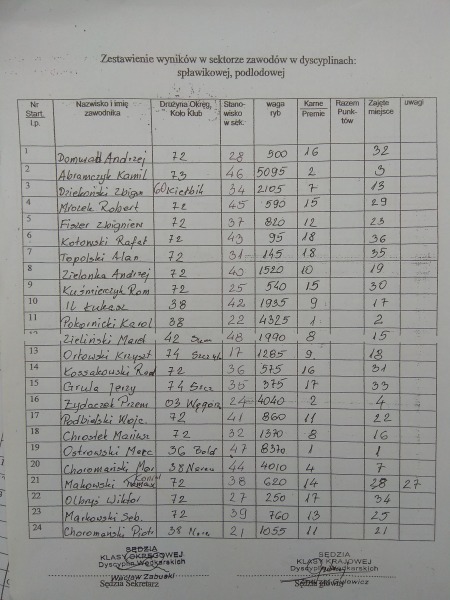 Zestawienie wyników w sektorze zawodów w dyscyplinach:
spławikowej, podlodowej
Nr Start. l.p. Nazwisko i imię zawodnika Drużyna Okręg, Koło Klub Stanowisko w sek. waga ryb Karne Premie Razem Punktów Zajęte miejsce uwagi
1 Domurad Andrzej 72 28 500 16 32
2 Abramczyk Kamil 73 46 5095 2 3
3 Dziekoński Zbign 60 Kiełbik 34 2105 7 13
4 Mrozek Robert 72 45 590 15 29
5 Fiszer Zbigniew 72 37 820 12 23
6 Kotowski Rafał 72 43 95 18 36
7 Topolski Alan 72 31 145 18 35
8 Zielonka Andrzej 72 40 1520 10 19
9 Kuśmierczyk Rom 72 25 540 15 30
10 Il Łukasz 38 42 1935 9 17
11 Pokornicki Karol 38 22 4325 1 2
12 Zieliński Marek 42 48 1990 8 15
13 Orłowski Krzyszt 74 Szczyt 17 1285 9 18
14 Kossakowski Rad 72 36 575 16 31
15 Grula Jerzy 74 Szcz 35 375 17 33
16 Żydaczek Przem 03 Węgorz 24 4040 2 4
17 Podbielski Wojc. 72 41 860 11 22
18 Chrostek Mariusz 72 32 1370 8 16
19 Ostrowski Marc 36 Bold 47 8370 1 1
20 Choromański Mar 38 Narew 44 4010 4 7
21 Makowski Konrad 72 38 620 14 28 27
22 Olbryś Wiktor 72 27 250 17 34
23 Markowski Seb. 72 39 760 13 25
24 Choromański Piotr 38 Nare 21 1055 11 21
SĘDZIA SĘDZIA
KLASY OKRĘGOWEJ KLASY KRAJOWEJ
Dyscyplin Wędkarskich Dyscyplin Wędkarskich
Wacław Zabuski
Sędzia Sekretarz Sędzia główny